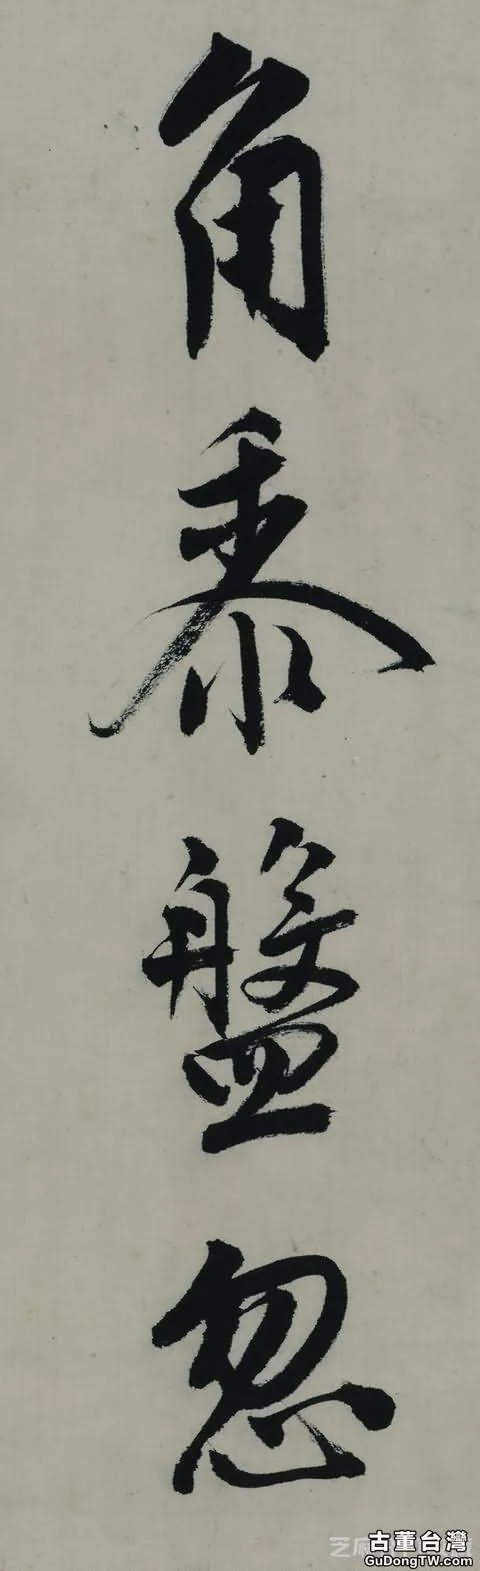 角黍盤忽
古董台灣
GuDongTW.com